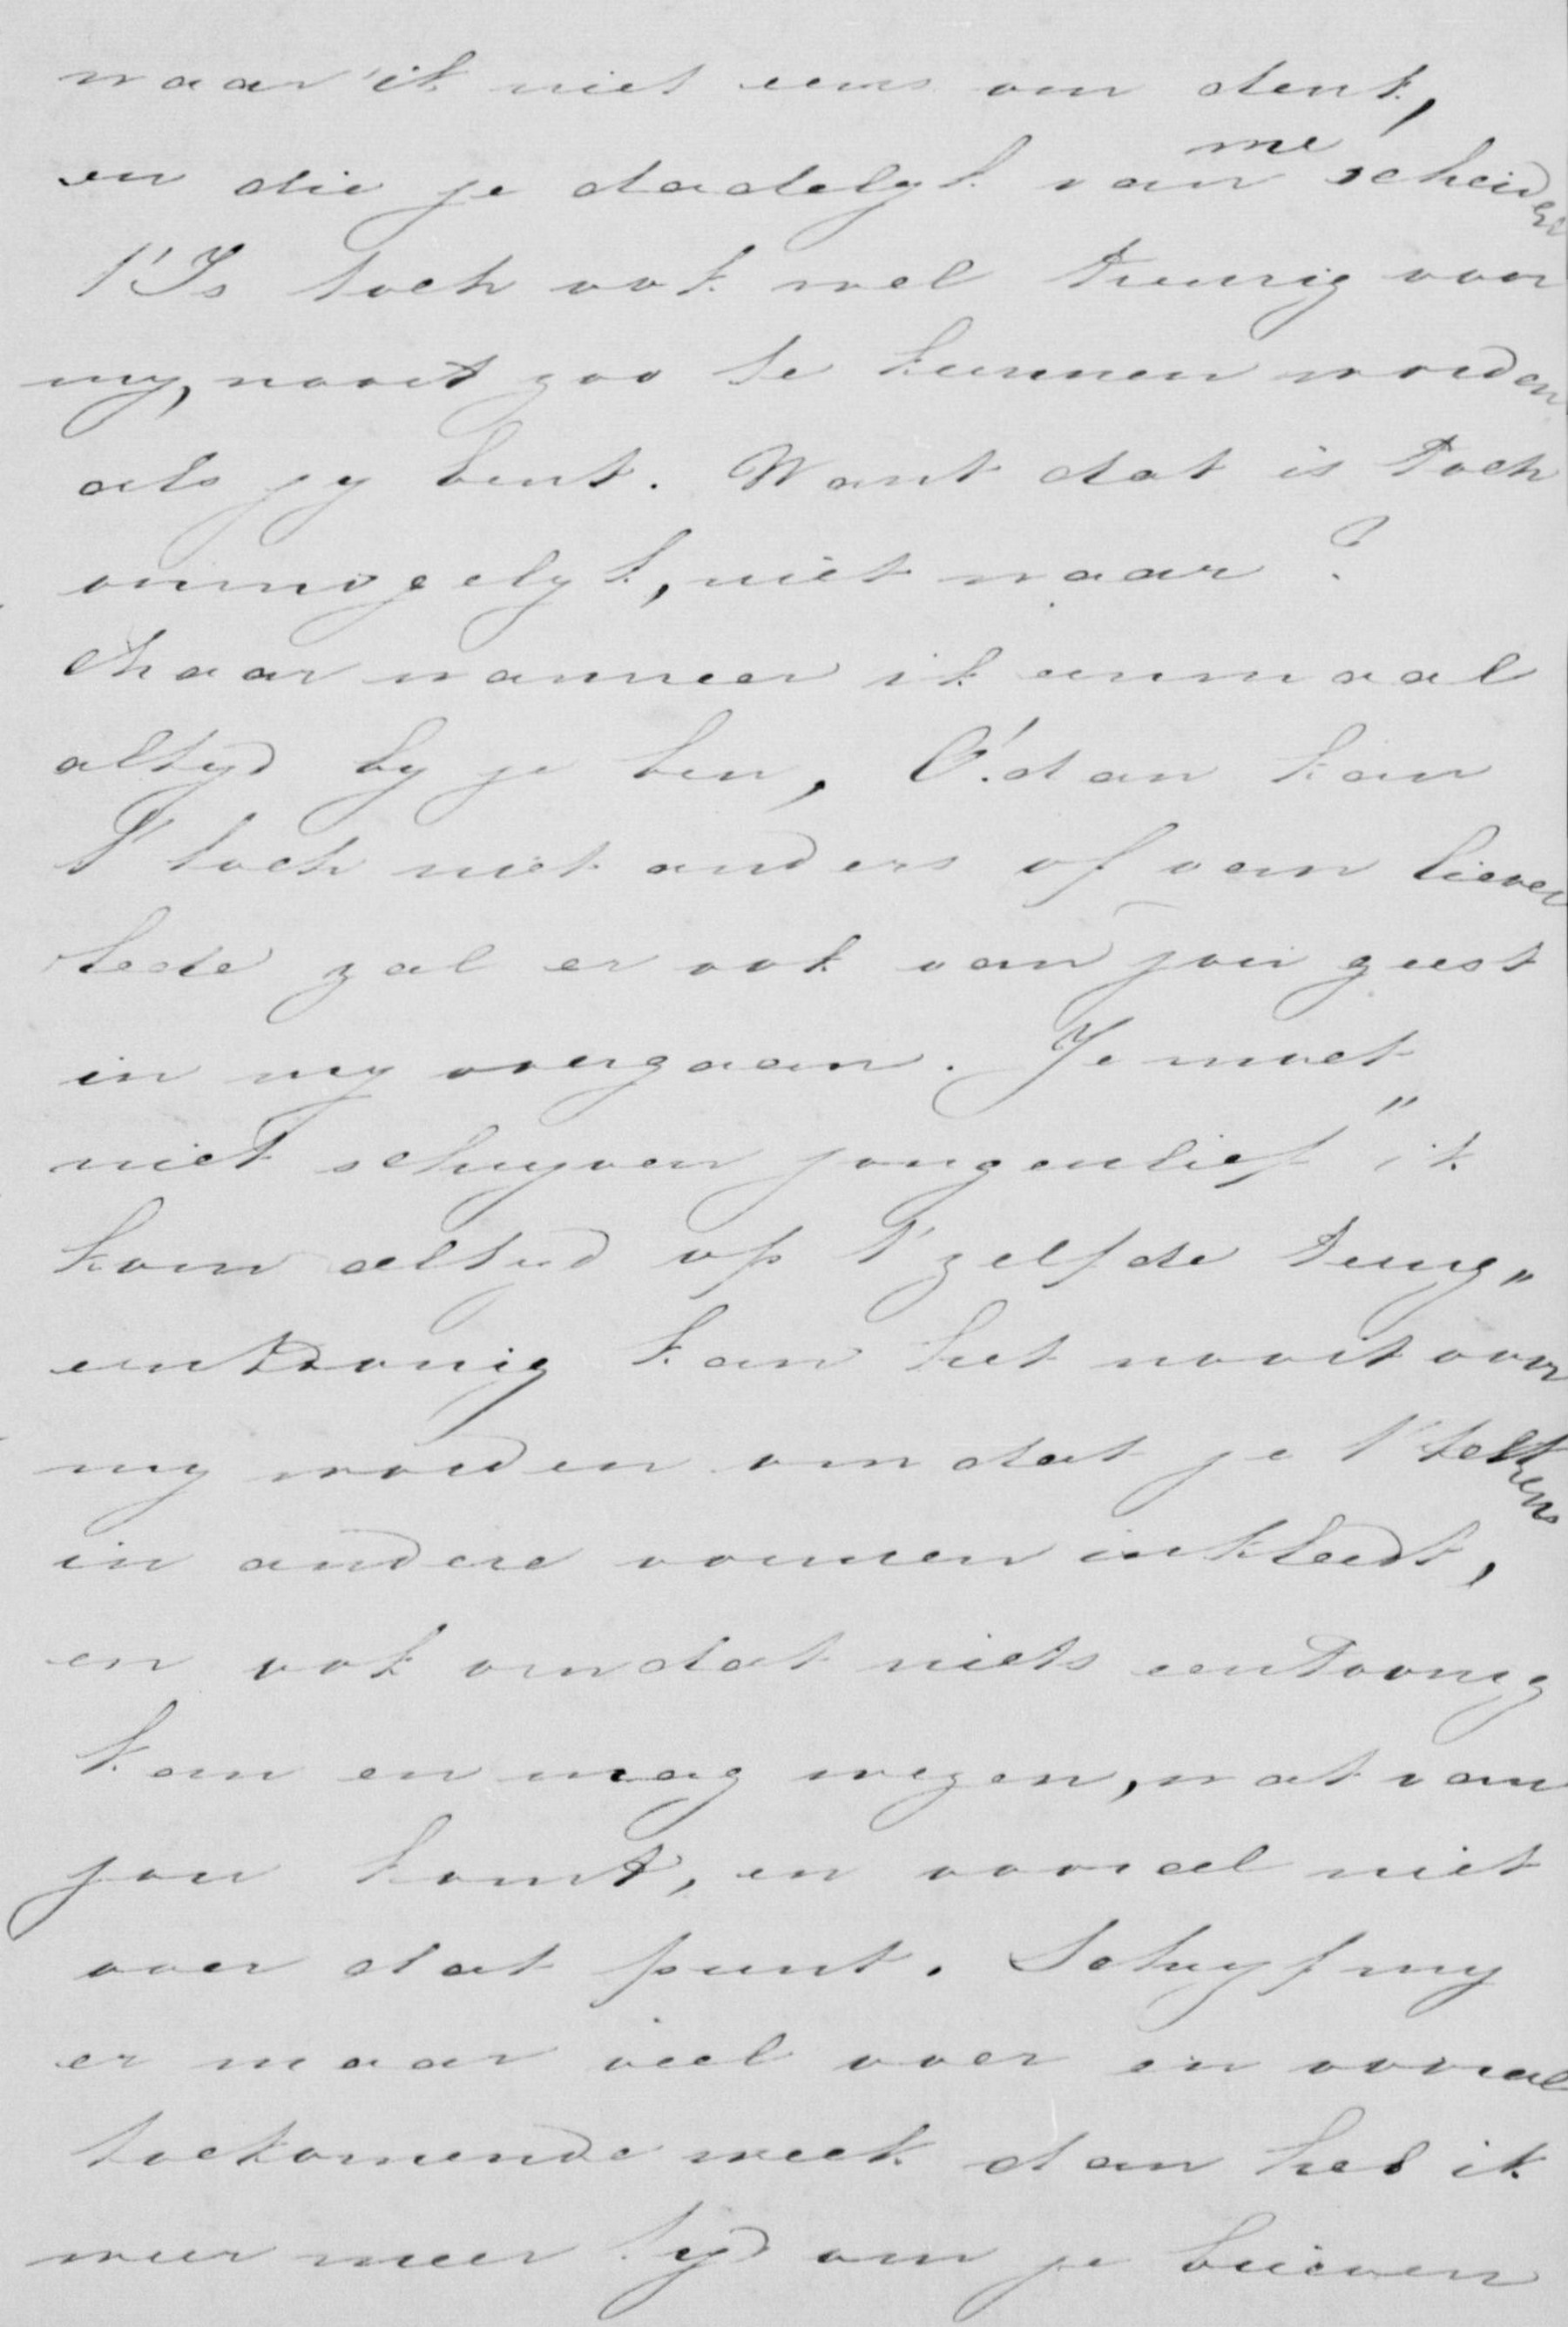 waar ik niet eens om denk,
en die je dadelyk van me scheiden
t'Is toch ook wel treurig voor
my, nooit zoo te kunnen worden
als jy bent. Want dat is toch
onmogelyk, niet waar?
Maar wanneer ik eenmaal
altyd by je ben, O! dan kan
t' toch niet anders of van liever
lede zal er ook van jou geest
in my overgaan. Je moet
niet schryven jongenlief "ik
kom altyd op t'zelfde terug"
eentoonig kan het nooit voor
my worden omdat je t' telkens
in andere vormen inkleedt,
en ook omdat niets eentoonig
kan en mag wezen, wat van
jou komt, en vooral niet
over dat punt. Schryf my
er maar veel over en vooral
toekomende week dan heb ik
weer meer tyd om je brieven